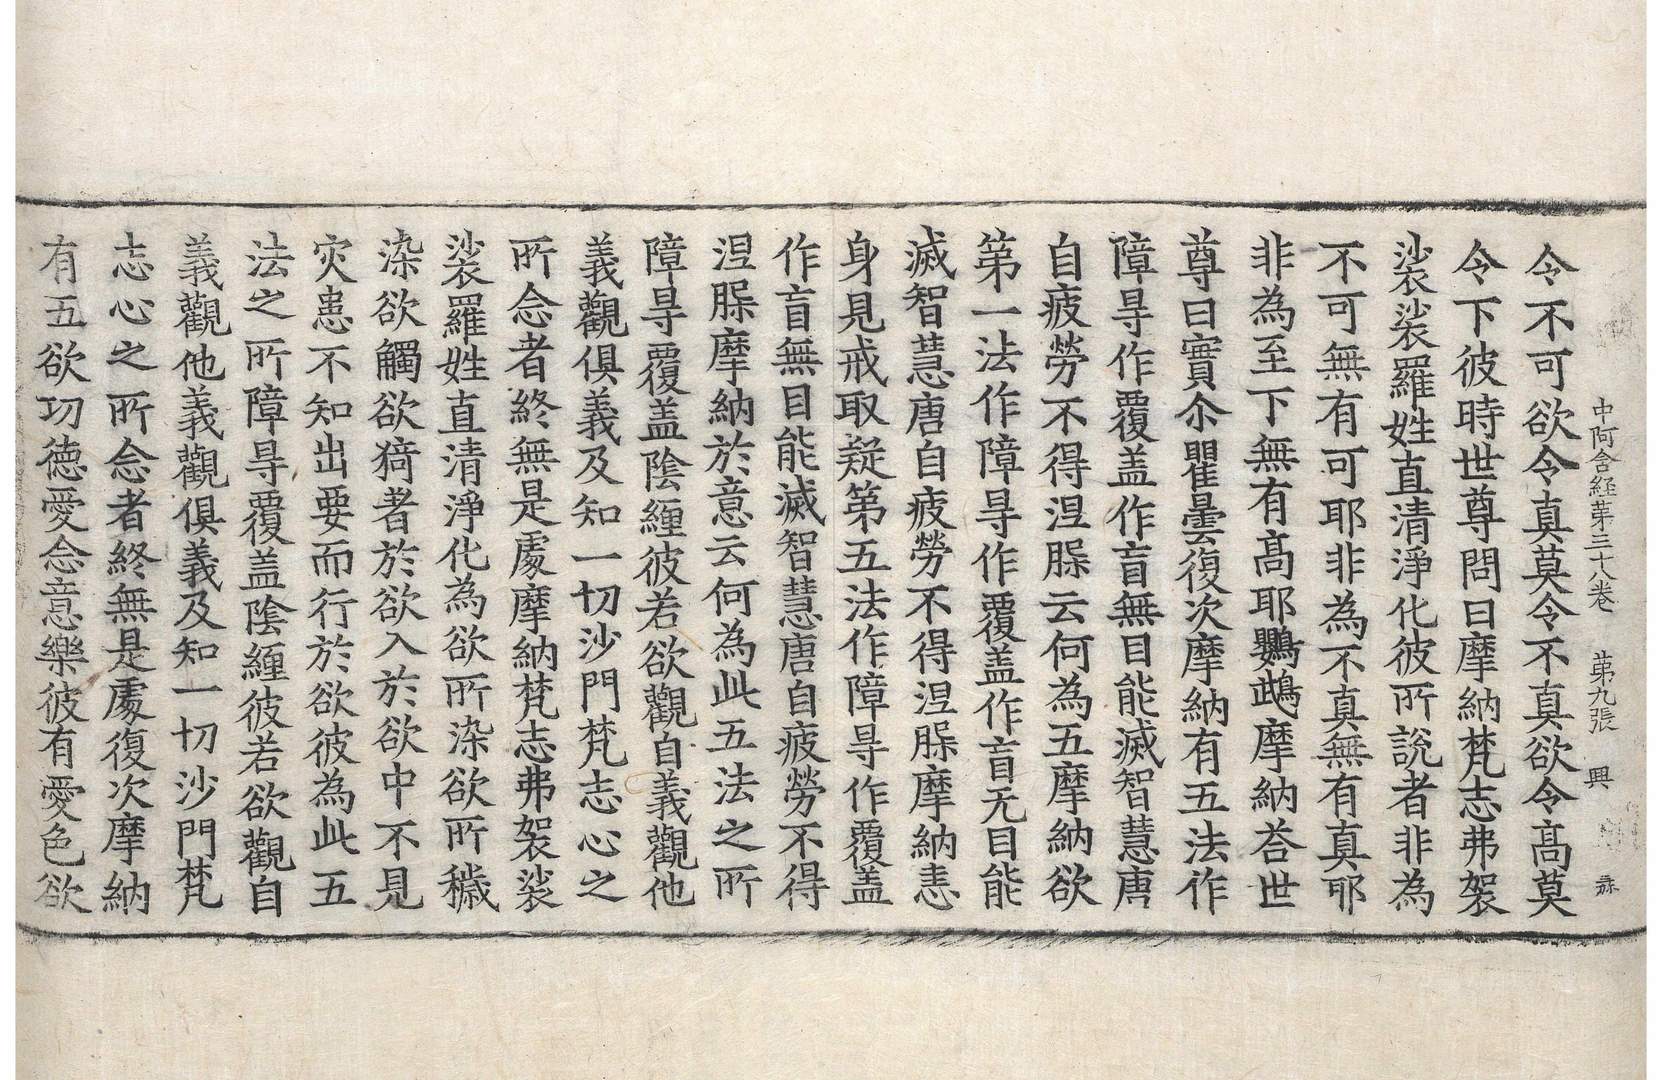 中阿含経第三十八卷　第九張　興
令不可欲令真莫令不真欲令髙莫
令下彼時世尊問曰摩納梵志弗袈
裟裟羅姓直清淨化彼所說者非為
不可無有可耶非為不真無有真耶
非為至下無有髙耶鸚鵡摩納荅世
尊曰實尒瞿曇復次摩納有五法作
障㝵作覆盖作盲無目能滅智慧唐
自疲勞不得涅槃云何為五摩納欲
第一法作障㝵作覆盖作盲无目能
滅智慧唐自疲勞不得涅槃摩納恚
身見戒取疑第五法作障㝵作覆盖
作盲無目能滅智慧唐自疲勞不得
涅槃摩納於意云何為此五法之所
障㝵覆盖陰纏彼若欲觀自義觀他
義觀俱義及知一切沙門梵志心之
所念者終無是處摩納梵志弗袈裟
裟羅姓直清淨化為欲所染欲所穢
染欲觸欲猗著於欲入於欲中不見
灾患不知出要而行於欲彼為此五
法之所障㝵覆盖陰纏彼若欲觀自
義觀他義觀俱義及知一切沙門梵
志心之所念者終無是處復次摩納
有五欲功徳愛念意樂彼有愛色欲